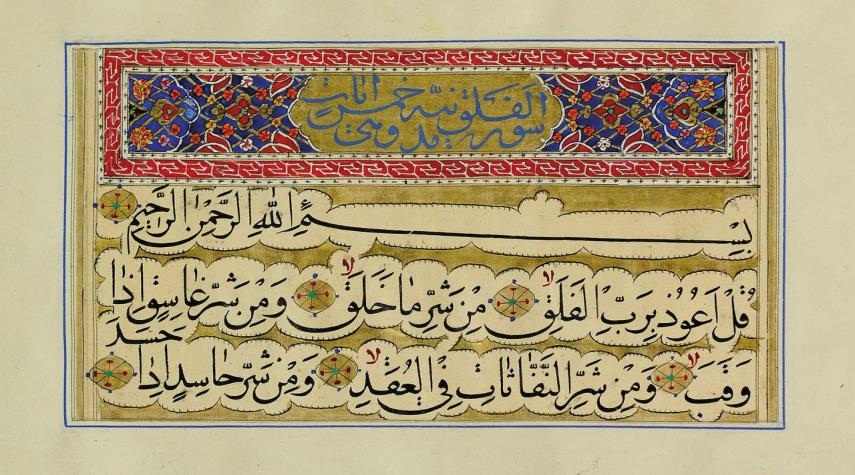 سورة الفلق مدنية وهي خمس اٰيات
بِسْمِ اللّٰهِ الرَّحْمٰنِ الرَّحِيمِ
قُلْ اَعُوذُ بِرَبِّ الْفَلَقِ لا مِنْ شَرِّ مَا خَلَقَ لا وَمِنْ شَرِّ غَاسِقٍ اِذَا
وَقَبَ لا وَمِنْ شَرِّ النَّفَّاثَاتِ فِي الْعُقَدِ لا وَمِنْ شَرِّ حَاسِدٍ اِذَا حَسَدَ